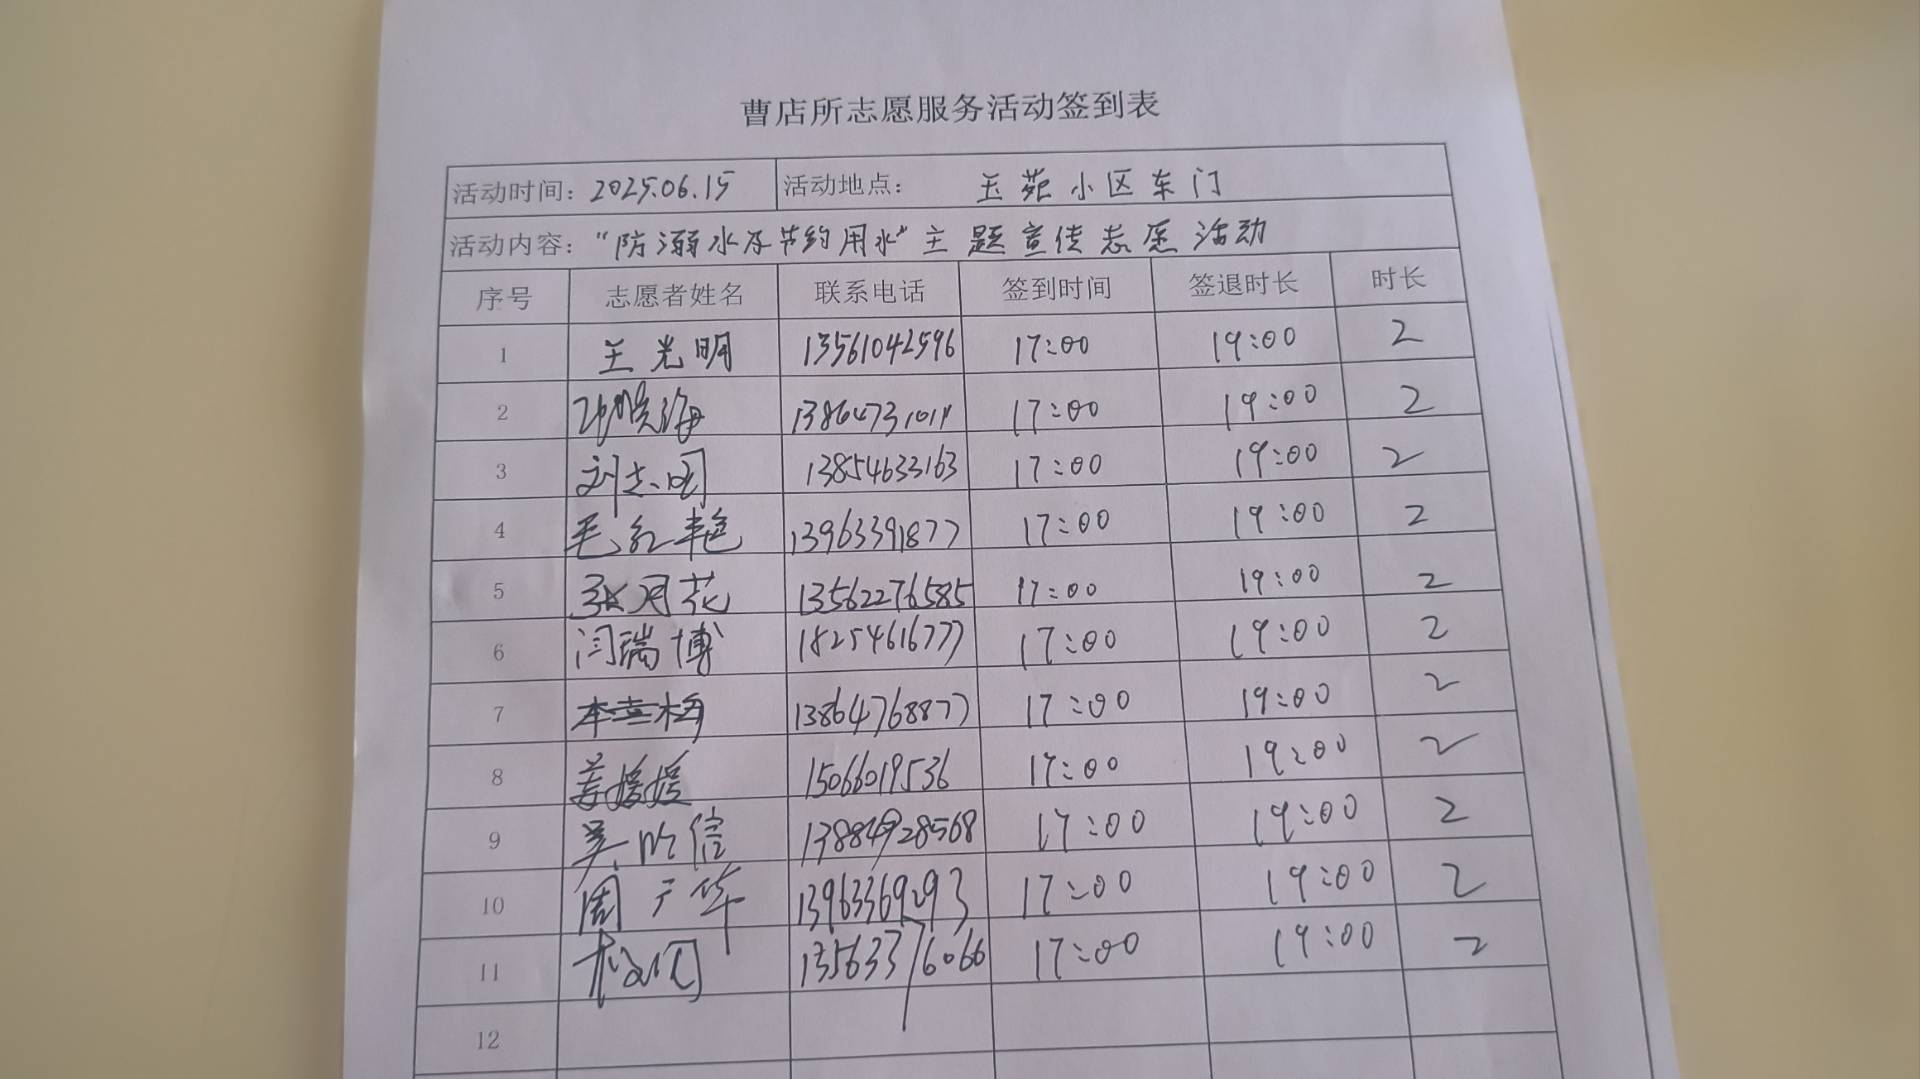 曹店所志愿服务活动签到表
活动时间：2025.06.15 活动地点： 玉苑小区东门
活动内容：“防溺水及节约用水”主题宣传志愿活动
序号 志愿者姓名 联系电话 签到时间 签退时长 时长
1 王光明 13561042596 17:00 19:00 2
2 海 13864731014 17:00 19:00 2
3 刘志国 13854633163 17:00 19:00 2
4 毛红艳 13963391877 17:00 19:00 2
5 张月花 13562276585 17:00 19:00 2
6 闫瑞博 18254616777 17:00 19:00 2
7 李兰梅 13864768877 17:00 19:00 2
8 姜媛媛 15066019536 17:00 19:00 2
9 吴 信 13884928568 17:00 19:00 2
10 周广华 13963369293 17:00 19:00 2
11 13563376066 17:00 19:00 2
12